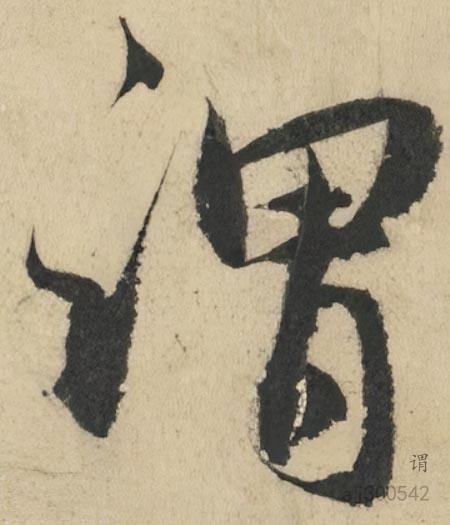 謂
谓
a1300542